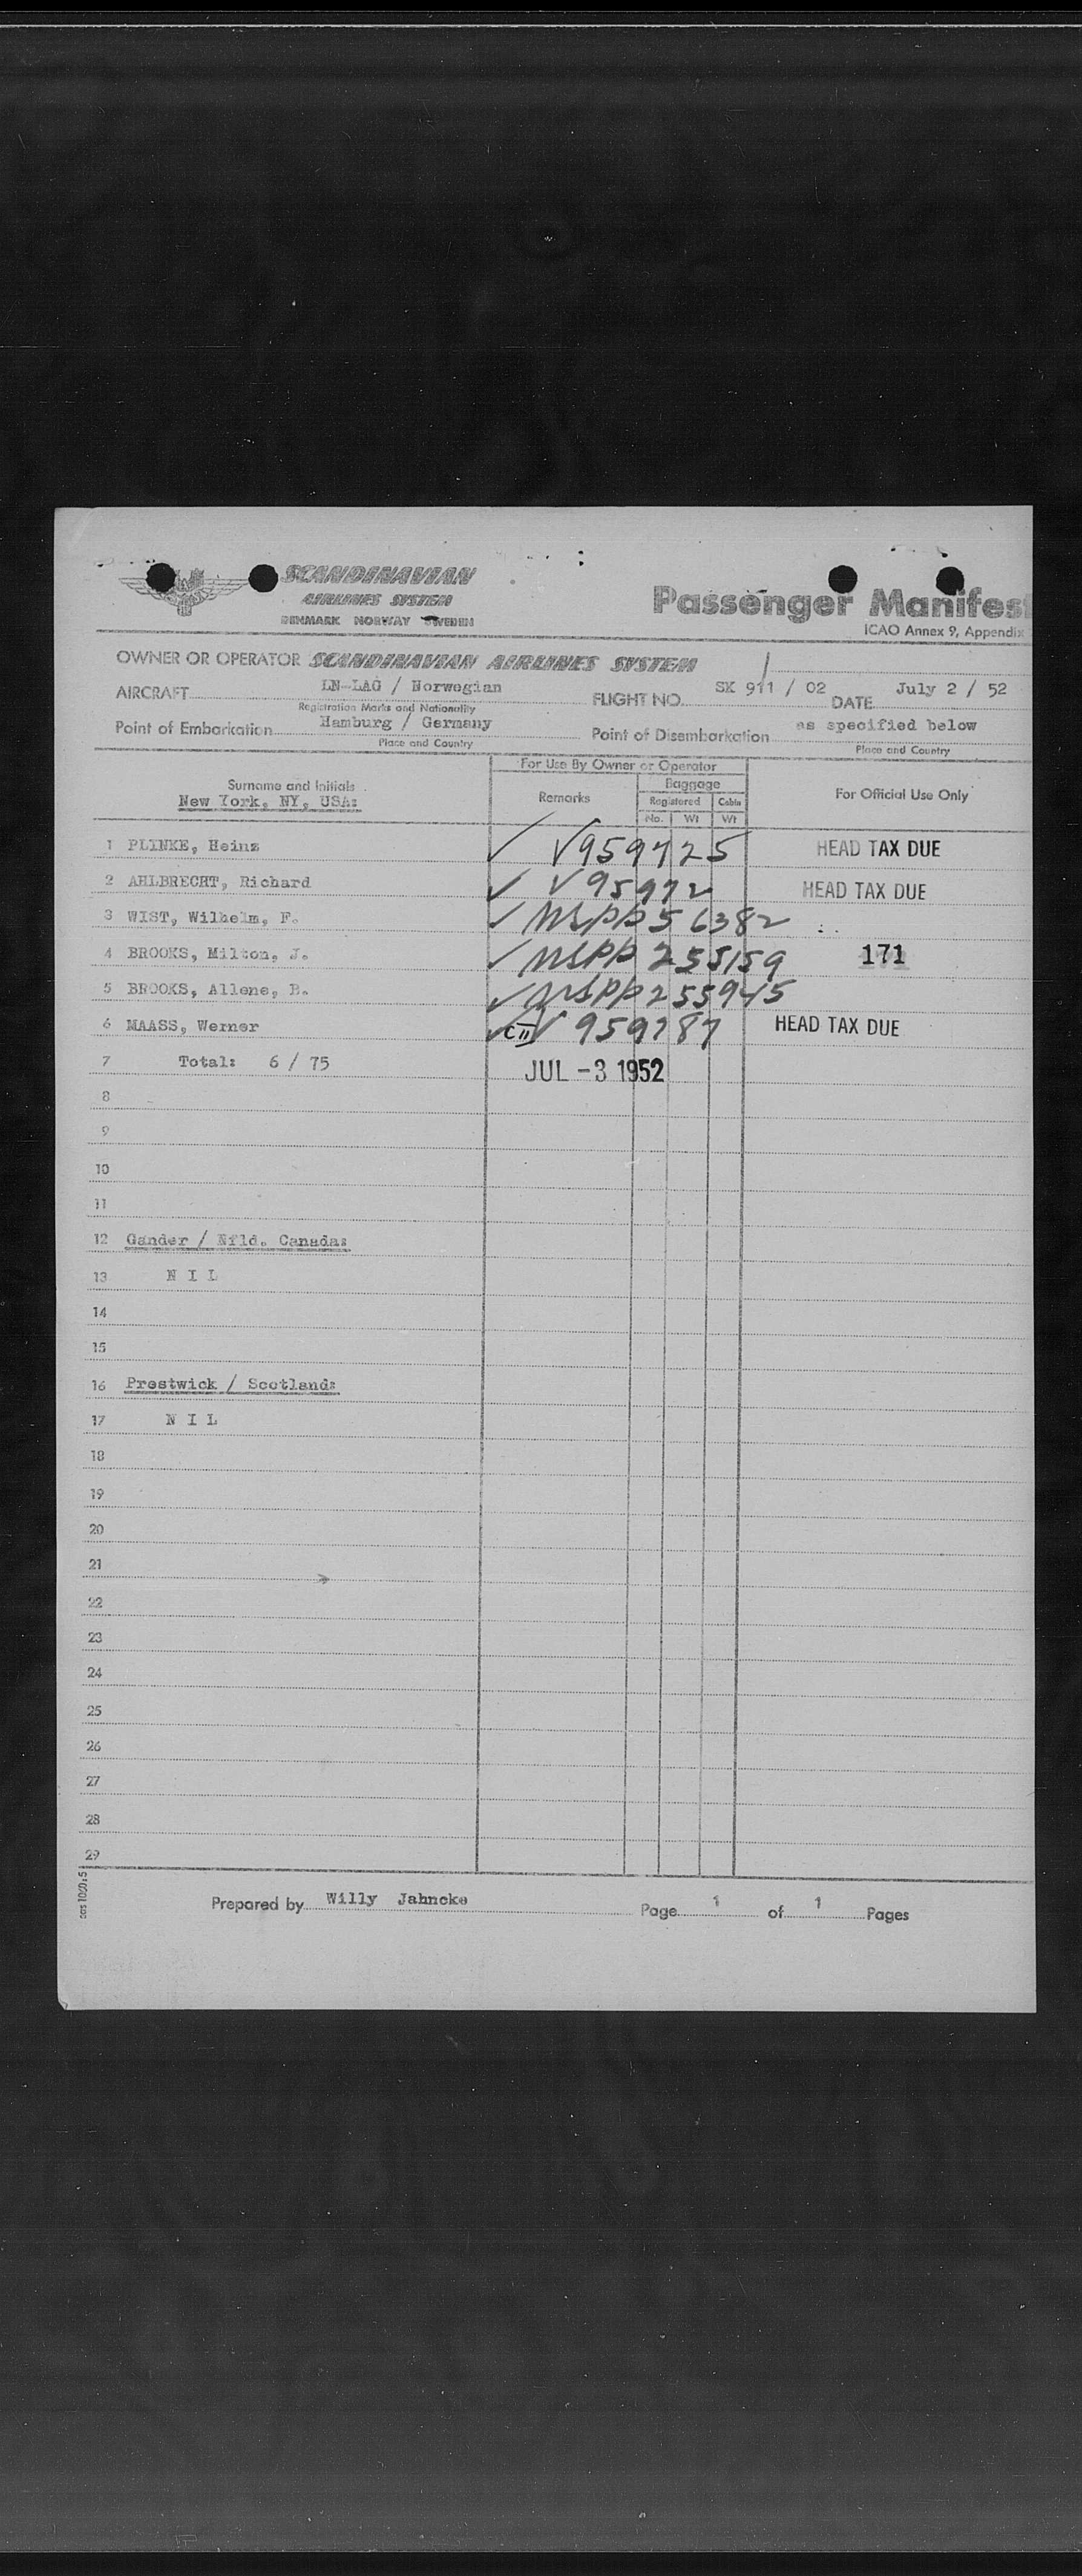 SCANDINAVIAN
AIRLINES SYSTEM
DENMARK NORWAY SWEDEN
Passenger Manifes
ICAO Annex 9, Appendix
OWNER OR OPERATOR SCANDINAVIAN AIRLINES SYSTEM
AIRCRAFT LN-LAG / Norwegian FLIGHT NO. SK 911 / 02 DATE July 2 / 52
Registration Marks and Nationality
Point of Embarkation Hamburg / Germany Point of Disembarkation as specified below
Place and Country Place and Country
For Use By Owner or Operator
Surname and Initials Remarks Baggage For Official Use Only
New York, NY, USA: Registered Cabin
No. Wt Wt
1 PLINKE, Heinz ✓ V959725 HEAD TAX DUE
2 AHLBRECHT, Richard ✓ V95972 HEAD TAX DUE
3 WIST, Wilhelm, F. ✓ USPP 56382
4 BROOKS, Milton, J. ✓ USPP 255159 171
5 BROOKS, Allene, B. ✓ USPP 255945
6 MAASS, Werner ✓ V 959787 HEAD TAX DUE
7 Total: 6 / 75 JUL -3 1952
8
9
10
11
12 Gander / Nfld. Canada:
13 N I L
14
15
16 Prestwick / Scotland:
17 N I L
18
19
20
21
22
23
24
25
26
27
28
29
Prepared by Willy Jahncke Page 1 of 1 Pages